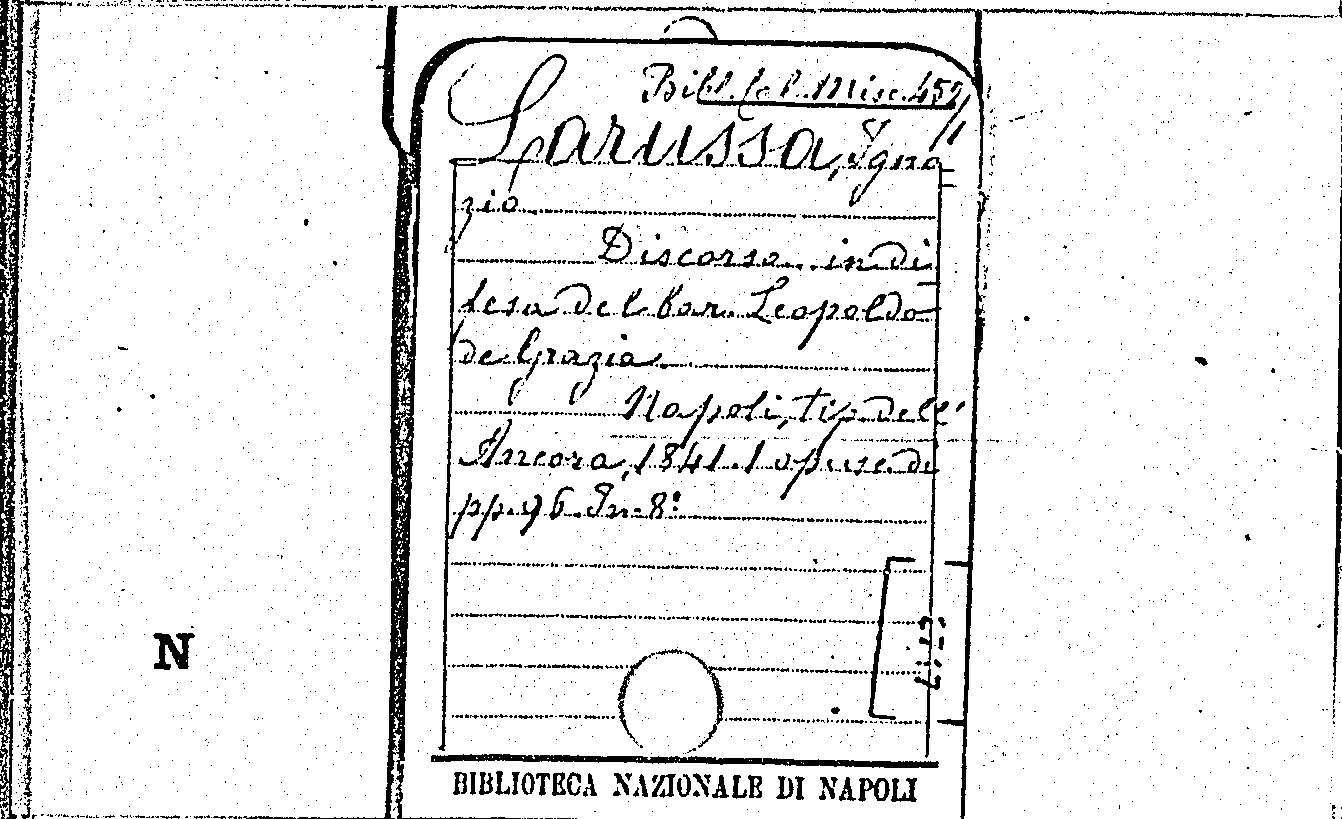 Bibl. Misc. 452/1
Larussa, Igna
zio
Discorso.. in di
fesa del bar. Leopoldo
de Grazia.
Napoli, tip. dell'
Ancora, 1841. 1 opusc. di
pp. 96. In-8°
N
BIBLIOTECA NAZIONALE DI NAPOLI